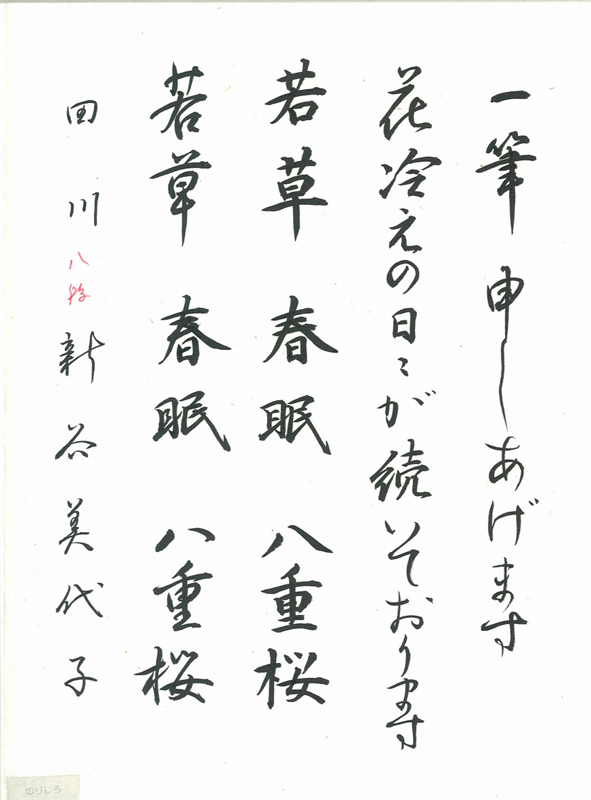 一筆申しあげます
花冷えの日々が続いております
若草 春眠 八重桜
若草 春眠 八重桜
田川 八段 新谷美代子
のりしろ